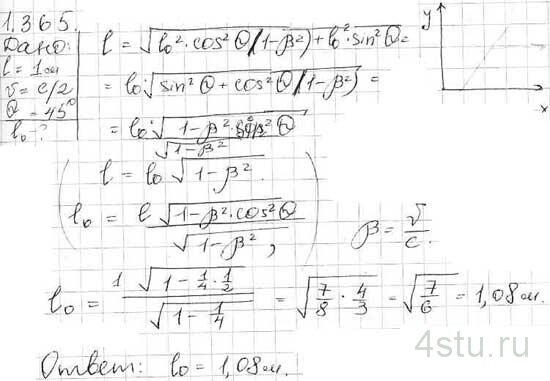 1.365.
Дано:
l = 1 м
v = c/2
θ = 45°
l₀ - ?
l = √(l₀²·cos²θ(1-β²) + l₀²·sin²θ) =
= l₀·√(sin²θ + cos²θ(1-β²)) =
= l₀·√(1-β²· cos²θ)
√(1-β²)
(l = l₀ √(1-β²).)
l₀ = l √(1-β²·cos²θ) / √(1-β²),
β = v/c.
l₀ = 1 √(1 - 1/4 · 1/2) / √(1 - 1/4) = √(7/8 · 4/3) = √(7/6) = 1,08 м.
Ответ: l₀ = 1,08 м.
y
x
4stu.ru